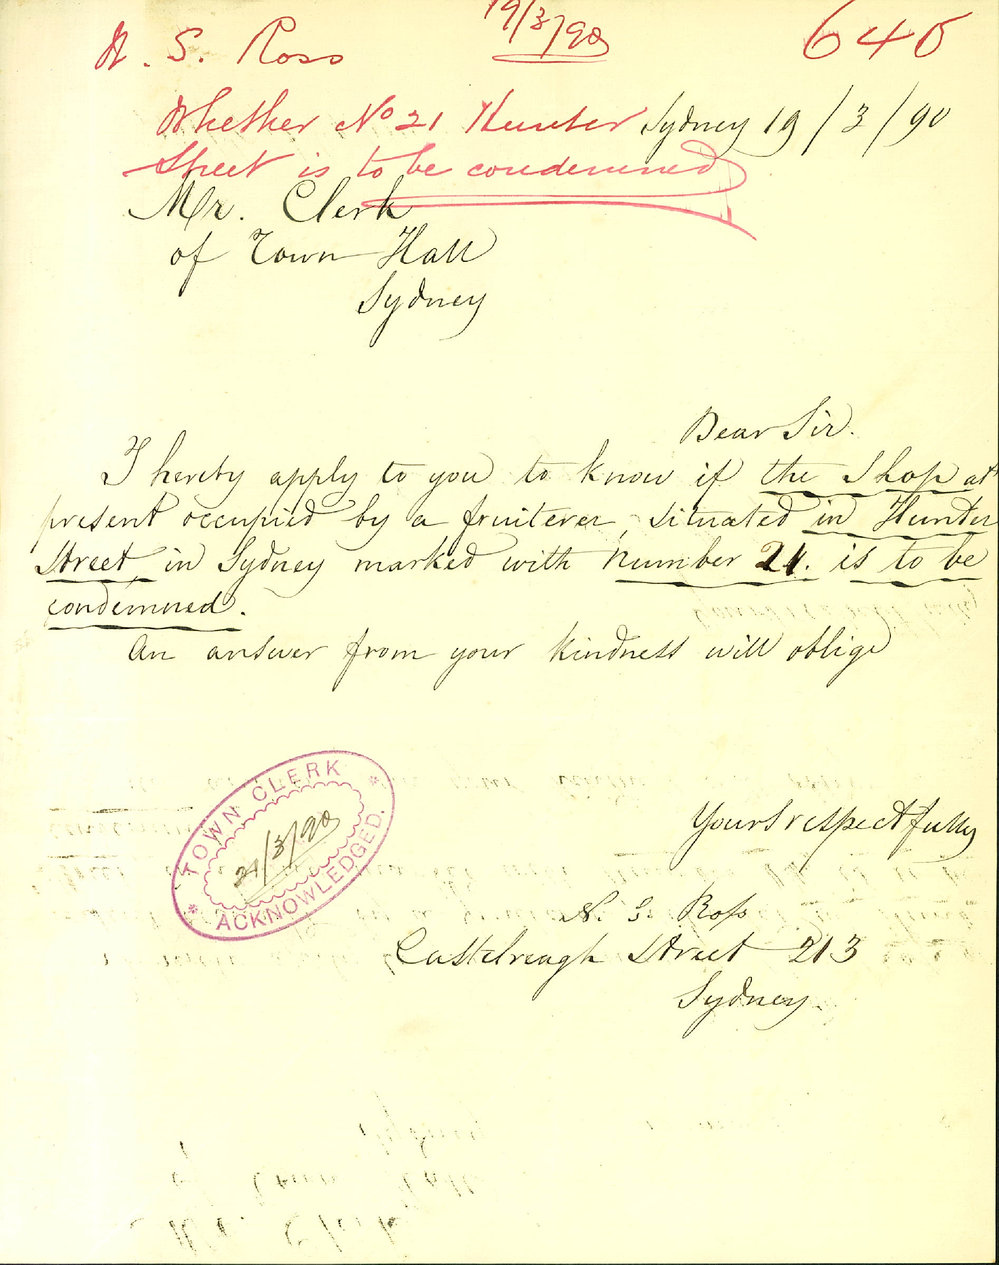 19/3/90
640
N. S. Ross
Whether No 21 Hunter
Street is to be condemned
Sydney 19/3/90
Mr. Clerk
of Town Hall
Sydney
Dear Sir.
I hereby apply to you to know if the Shop at
present occupied by a fruiterer, situated in Hunter
Street, in Sydney marked with number 21. is to be
condemned.
An answer from your kindness will oblige
Yours respectfully
N. S. Ross
Castelreagh Street 213
Sydney.
TOWN CLERK
/3/90
ACKNOWLEDGED.